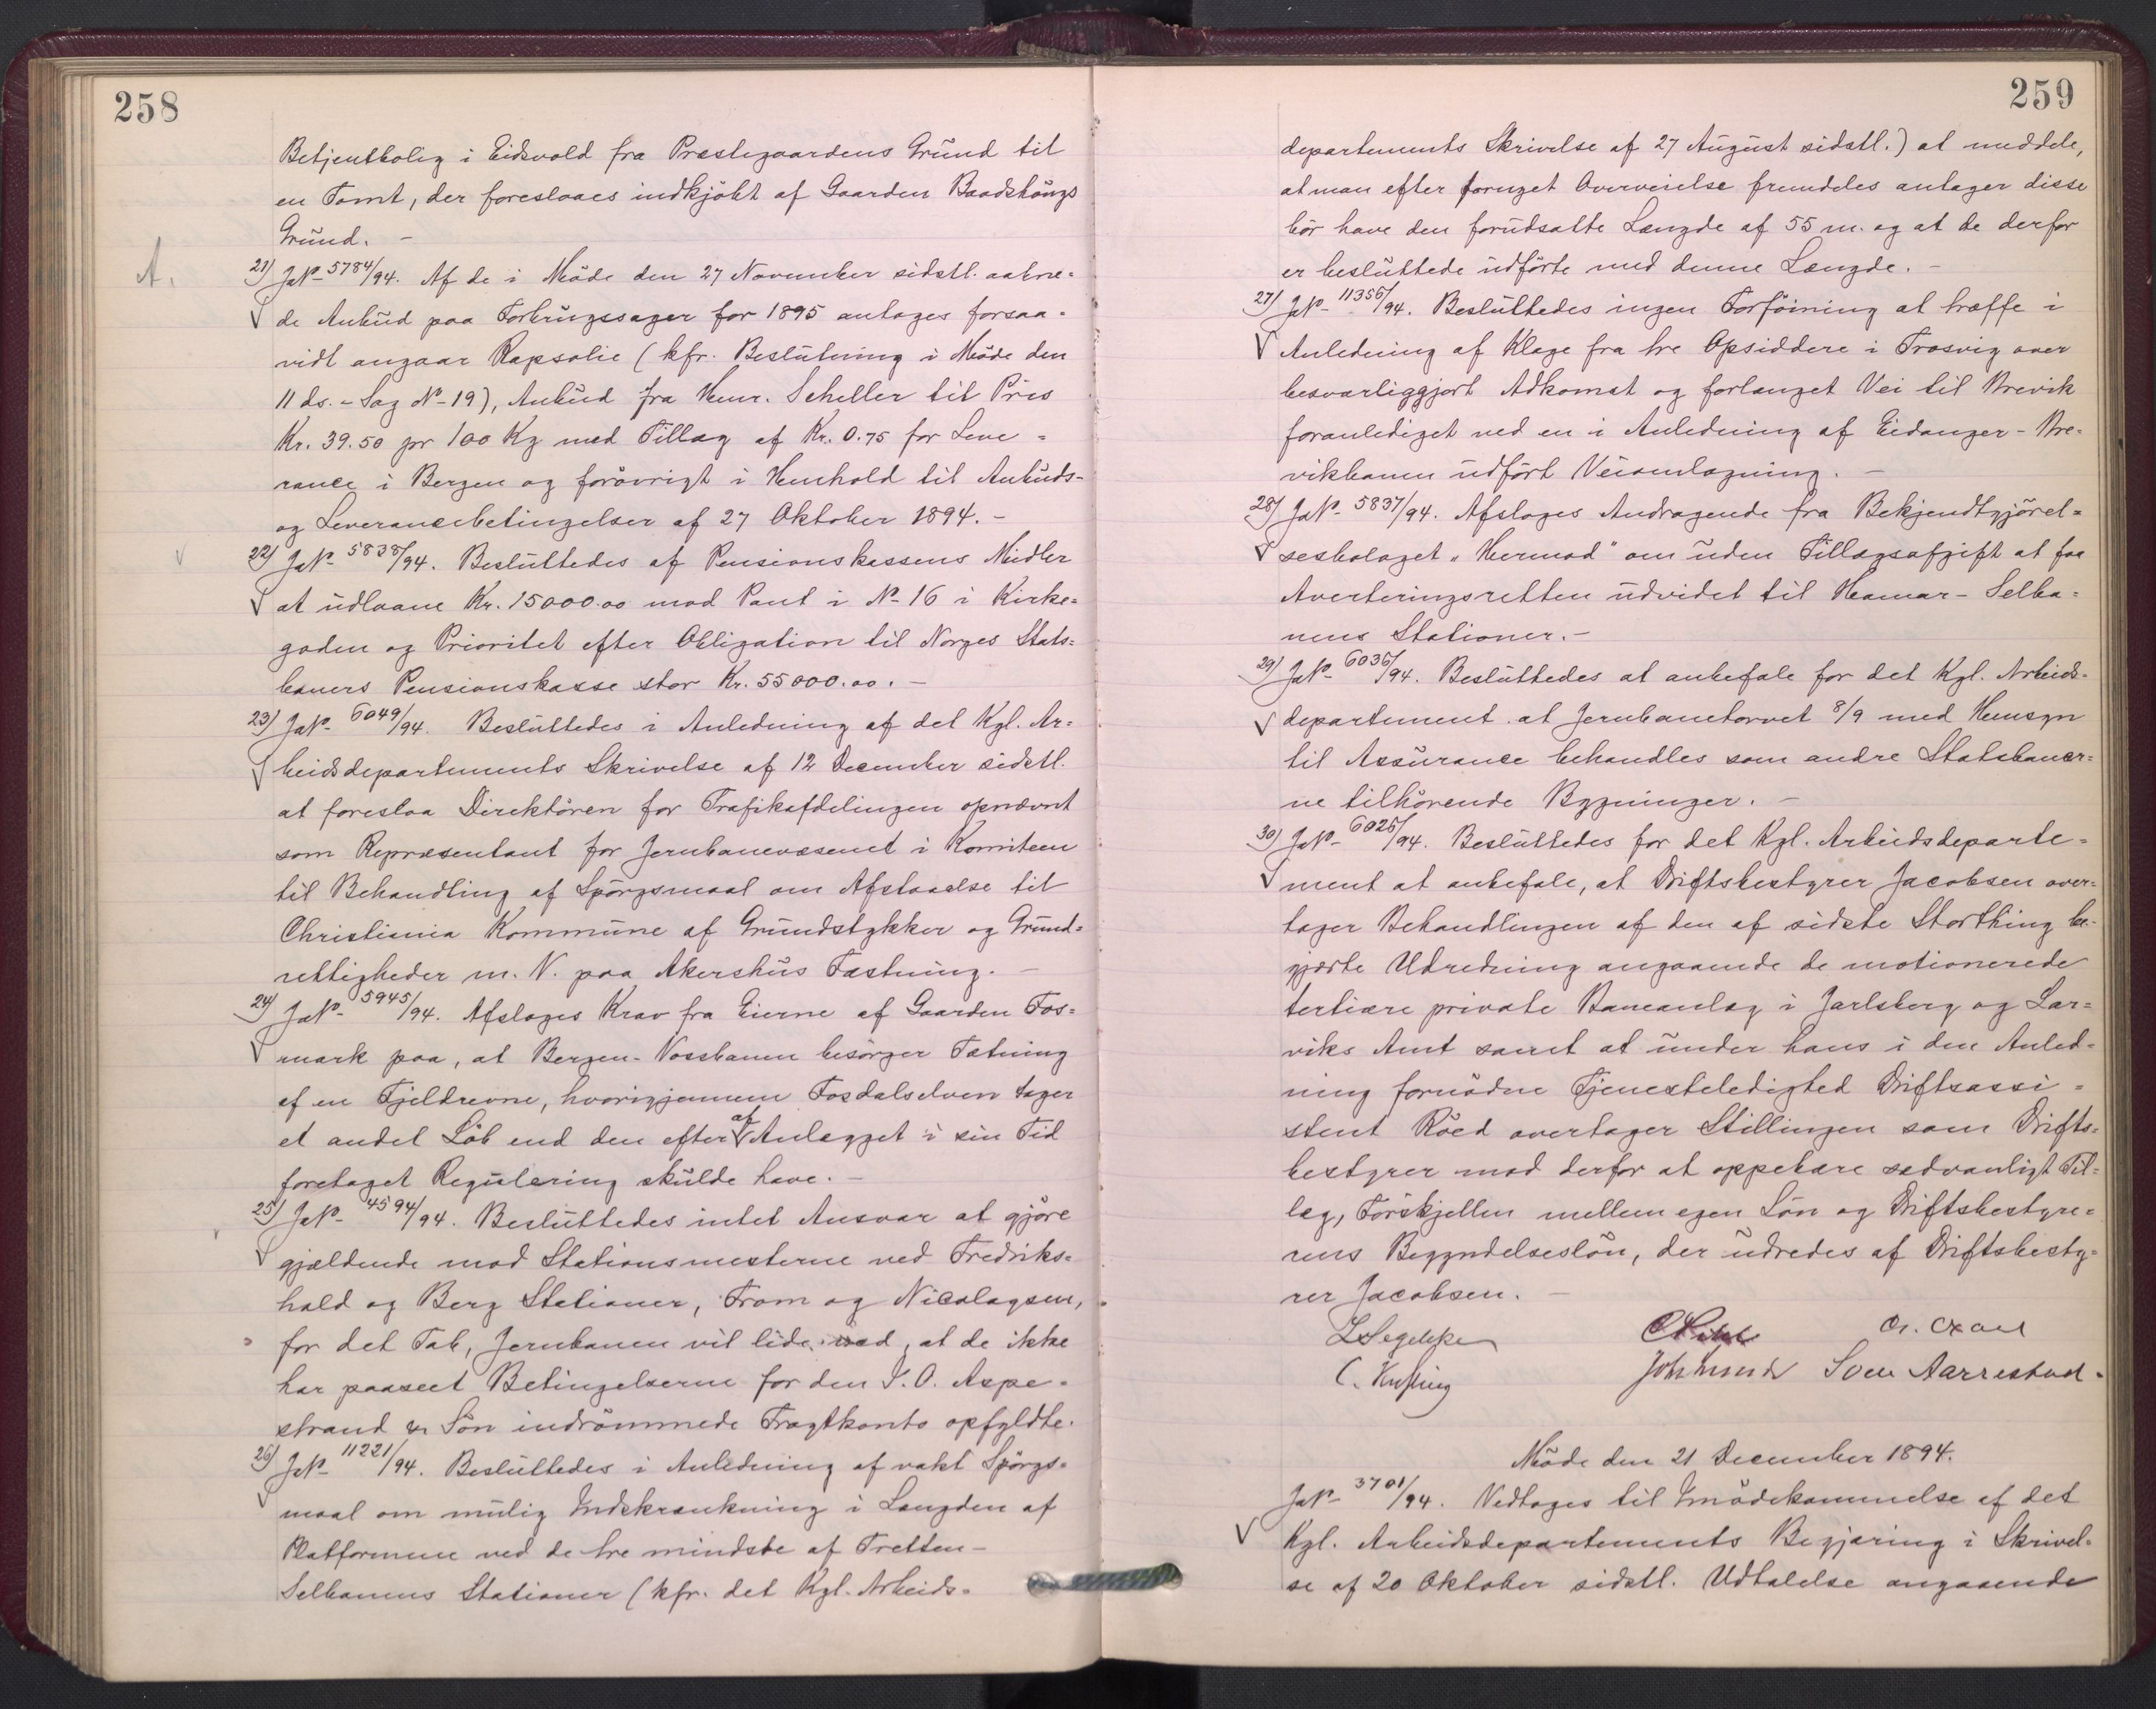 258
Betjentbolig i Eidsvold fra Præstegaardens Grund til
en Tomt, der foreslaaes indkjöbt af Gaarden Baadshaugs
Grund. -
A.
21) JNo 5784/94. Af de i Möde den 27 November sidstl. aabne-
de Anbud paa Forbrugssager for 1895 antages forsaa-
vidt angaar Rapsolie (kfr. Beslutning i Möde den
11 ds. - Sag No 19), Anbud fra Henr. Scheller til Pris
Kr. 39.50 pr 100 Kg med Tillæg af Kr. 0.75 for Leve-
rance i Bergen og forövrigt i Henhold til Anbuds-
og Leverancebetingelser af 27 Oktober 1894. -
22) JaNo 5838/94. Besluttedes af Pensionskassens Midler
at udlaane Kr. 15000.00 mod Pant i No 16 i Kirke-
gaden og Prioritet efter Obligation til Norges Stats-
baners Pensionskasse stor Kr. 55000.00. -
23) JaNo 6049/94. Besluttedes i Anledning af det Kgl. Ar-
beidsdepartements Skrivelse af 12 December sidstl.
at foreslaa Direktören for Trafikafdelingen opnævnt
som Repræsentant for Jernbanevæsenet i Komiteen
til Behandling af Spörgsmaal om Afstaaelse til
Christiania Kommune af Grundstykker og Grund-
rettigheder m. V. paa Akershus Fæstning. -
24) JaNo 5945/94. Afsloges Krav fra Eierne af Gaarden Fos-
mark paa, at Bergen-Vossbanen besörger Tætning
af en Fjeldrevne, hvorigjennem Fosdalselven tager
et andet Löb end den efter af Anlægget i sin Tid
foretaget Regulering skulde have. -
25) JaNo 4594/94. Besluttedes intet Ansvar at gjöre
gjældende mod Stationsmesterne ved Fredriks-
hald og Berg Stationer, From og Nicolaysen,
for det Tab, Jernbanen vil lide ved, at de ikke
har paaseet Betingelserne for den J. O. Aspe-
strand & Sön indrömmede Fragtkonto opfyldte.
26) JaNo 11221/94. Besluttedes i Anledning af vakt Spörgs-
maal om mulig Indskrænkning i Længden af
Platformene ved de tre mindste af Tretten-
Selbanens Stationer (kfr. det Kgl. Arbeids-
259
departements Skrivelse af 27 August sidstl.) at meddele,
at man efter fornyet Overveielse fremdeles antager disse
bör have den forudsatte Længde af 55 m. og at de derfor
er besluttede udförte med denne Længde. -
27) JNo 11356/94. Besluttedes ingen Forföining at træffe i
Anledning af Klage fra tre Opsiddere i Trosvig over
besværliggjort Adkomst og forlænget Vei til Brevik
foranlediget ved en i Anledning af Eidanger-Bre-
vikbanen udfört Veiomlægning. -
28) JaNo 5837/94. Afsloges Andragende fra Bekjendtgjörel-
sesbolaget "Hermod" om uden Tillægsafgift at faa
Averteringsretten udvidet til Hamar-Selba-
nens Stationer. -
29) JaNo 6036/94. Besluttedes at anbefale for det Kgl. Arbeids-
departement at Jernbanetorvet 8/9 med Hensyn
til Assurance behandles som andre Statsbaner-
ne tilhörende Bygninger. -
30) JaNo 6025/94. Besluttedes for det Kgl. Arbeidsdeparte-
ment at anbefale, at Driftsbestyrer Jacobsen over-
tager Behandlingen af den af sidste Storthing be-
gjærte Udredning angaaende de motionerede
tertiære private Baneanlæg i Jarlsberg og Lar-
viks Amt samt at under hans i den Anled-
ning fornödne Tjenesteledighed Driftsassi-
stent Röed overtager Stillingen som Drifts-
bestyrer mod derfor at oppebære sædvanligt Til-
læg, Forskjellen mellem egen Lön og Driftsbestyre-
rens Begyndelseslön, der udredes af Driftsbesty-
rer Jacobsen. -
Joh Lund Sven Aarrestad.
Möde den 21 December 1894.
JaNo 3701/94. Vedtoges til Imödekommelse af det
Kgl. Arbeidsdepartements Begjæring i Skrivel-
se af 20 Oktober sidstl. Udtalelse angaaende